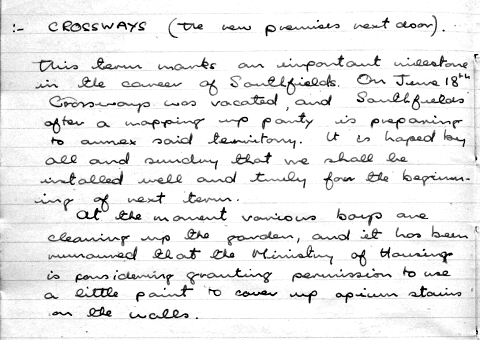 :- CROSSWAYS (the new premises next door).
This term marks an important milestone
in the career of Southfields. On June 18th
Crossways was vacated, and Southfields
after a mopping up party is preparing
to annex said territory. It is hoped by
all and sundry that we shall be
installed well and truly for the beginn-
ing of next term.
At the moment various boys are
cleaning up the garden, and it has been
rumoured that the Ministry of Housing
is considering granting permission to use
a little paint to cover up opium stains
on the walls.